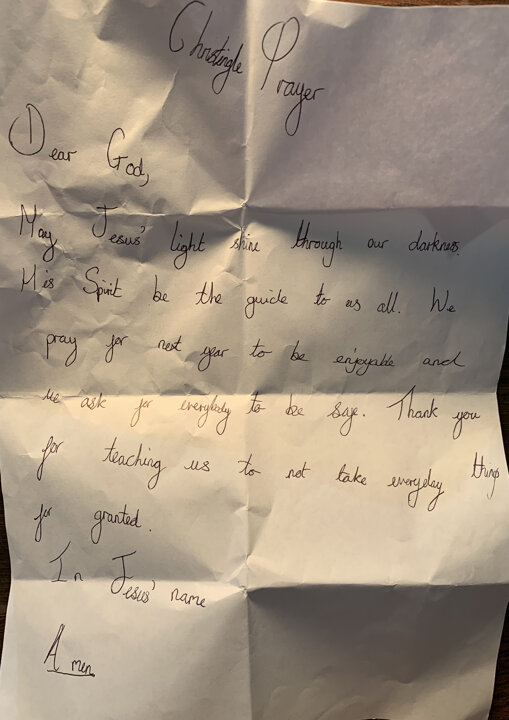 Christingle Prayer
Dear God,
May Jesus' light shine through our darkness.
His Spirit be the guide to us all. We
pray for next year to be enjoyable and
we ask for everybody to be safe. Thank you
for teaching us to not take everyday things
for granted.
In Jesus' name
Amen